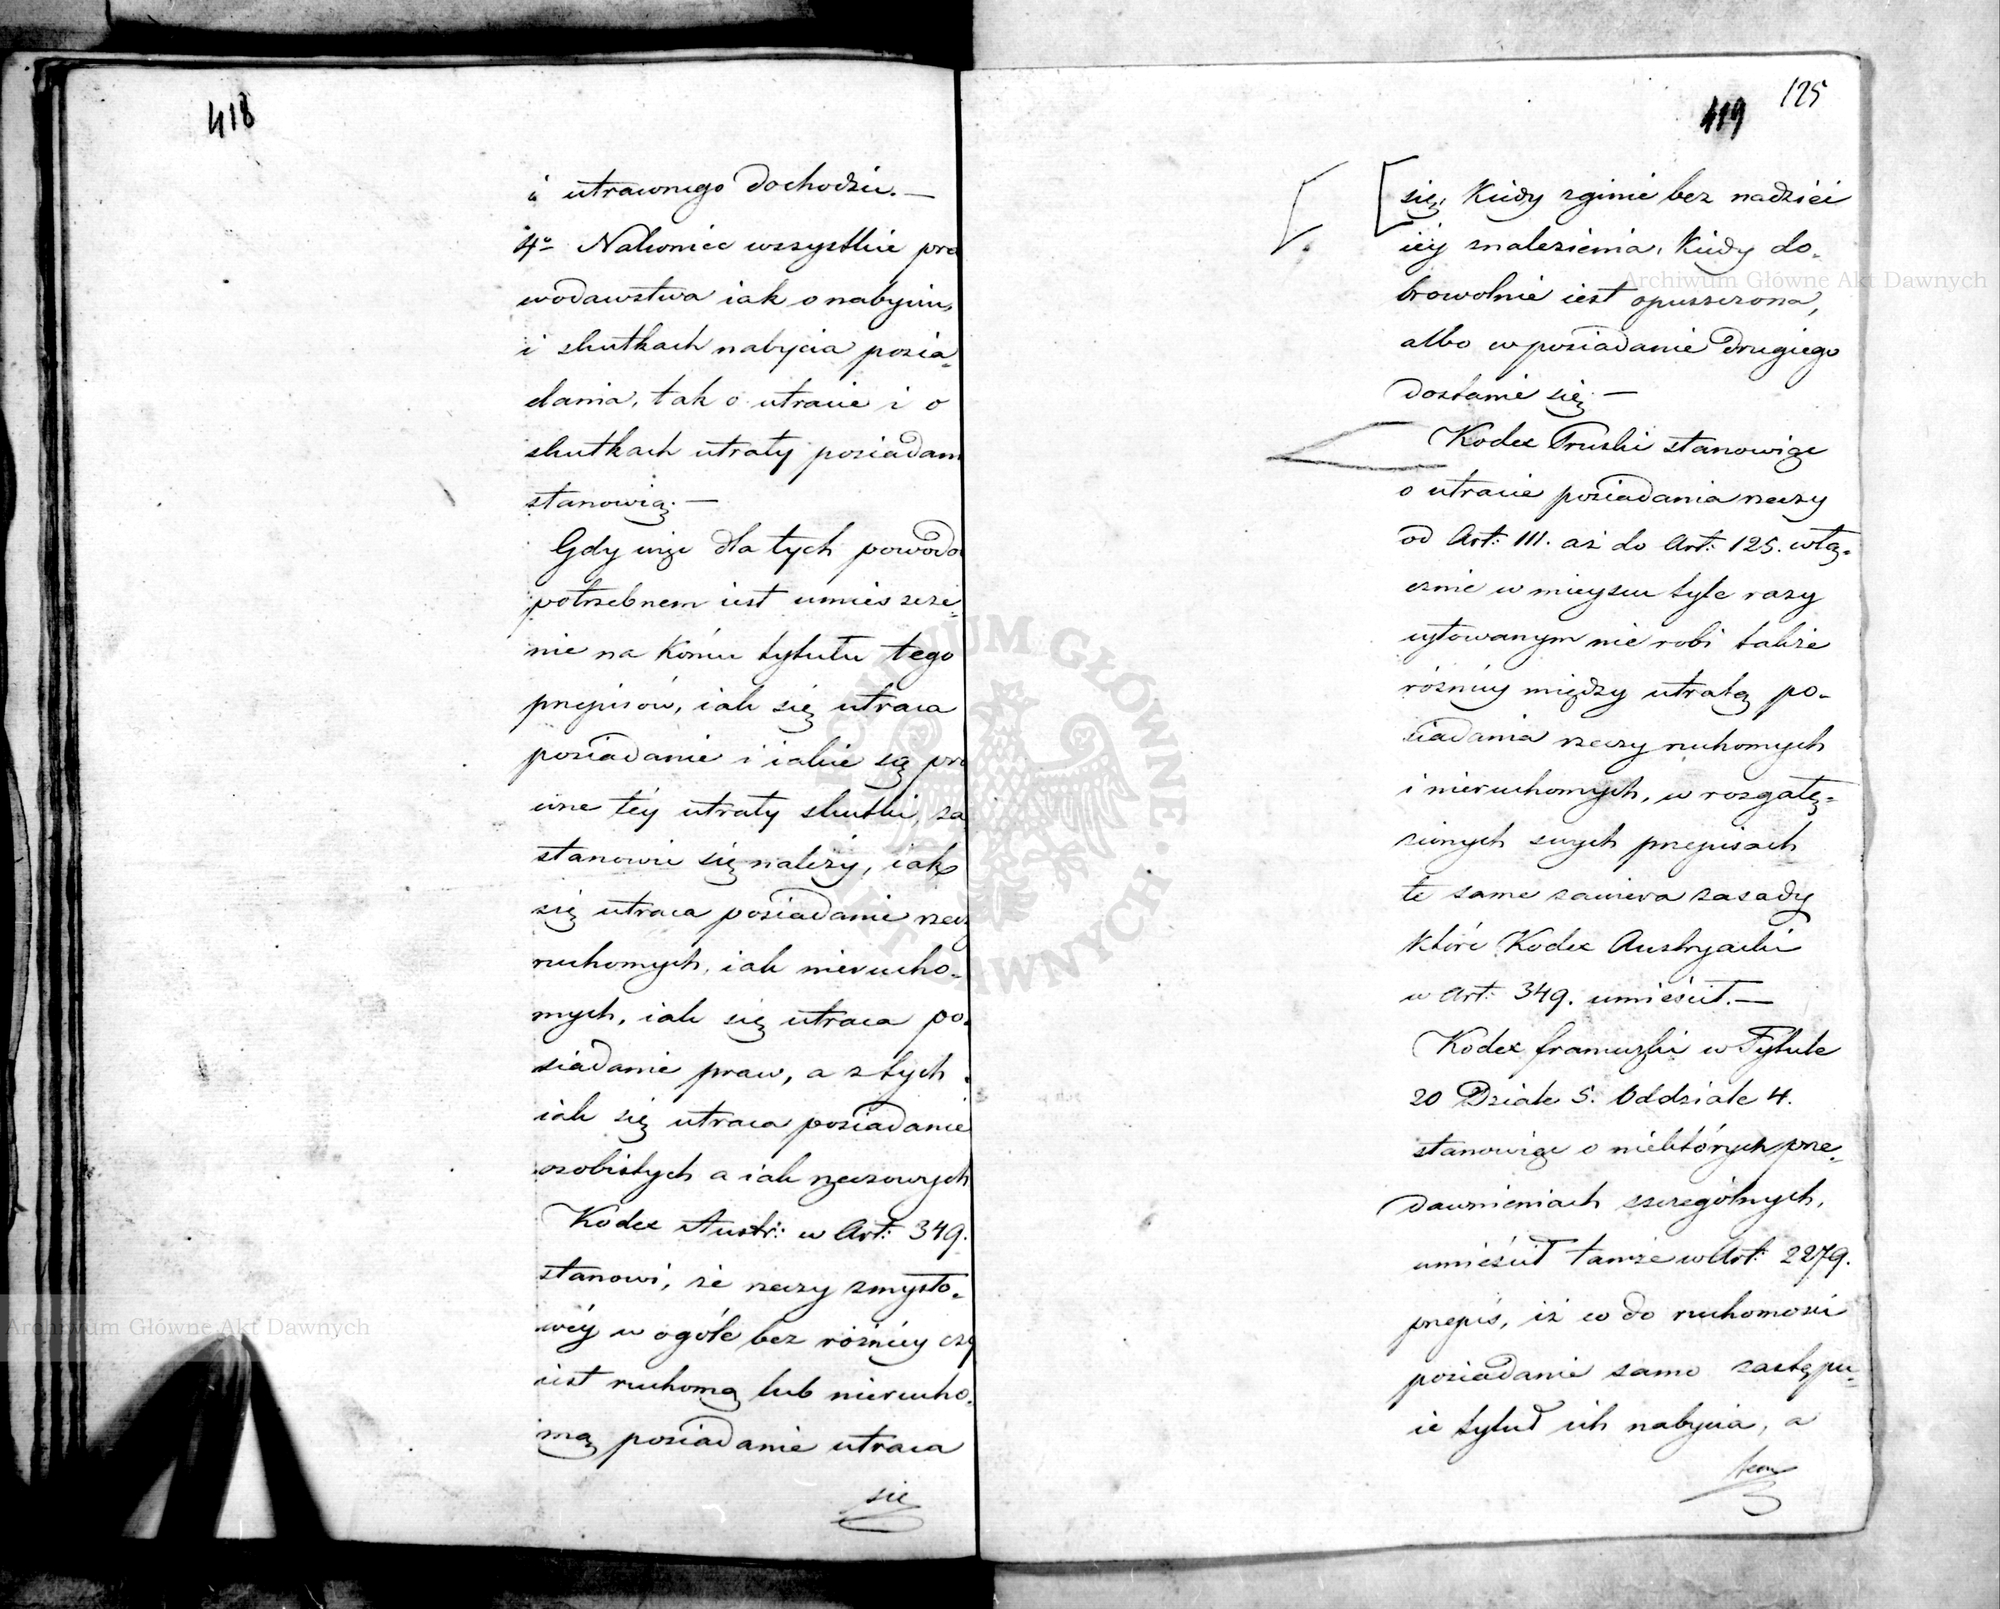 418
i utraconego dochodzić. —
4º Nakoniec wszystkie pra
wodawstwa iak o nabyciu,
i skutkach nabycia posia=
dania, tak o utracie i o
skutkach utraty posiadan
stanowią. —
Gdy więc dla tych powodo
potrzebnem iest umieszcze=
nie na Końcu tytułu tego
przepisów, iak się utraca
posiadanie i iakie są pra
wne téy utraty skutki, za
stanowić się należy, iak
się utraca posiadanie rzeczy
ruchomych, iak nierucho=
mych, iak się utraca po=
siadanie praw, a z tych
iak się utraca posiadanie
osobistych a iak rzeczowych
Kodex Austr: w Art: 349.
stanowi, że rzeczy zmysło=
wéy w ogóle bez różnicy czy
iest ruchomą lub nierucho=
mą posiadanie utraca
się
125
419
się, Kiedy zginie bez nadziei
iéy znalezienia, Kiedy do=
browolnie iest opuszczona,
albo w posiadanie drugiego
dostanie się. —
Kodex Pruski stanowiąc
o utracie posiadania rzeczy
od Art: 111. aż do Art: 125. włą=
cznie w mieyscu tyle razy
cytowanym nie robi także
różnicy między utratą po=
siadania rzeczy ruchomych
i nieruchomych, w rozgałę=
zionych swych przepisach
te same zawiera zasady
które Kodex Austryacki
w Art: 349. umieścił. —
Kodex francuzki w Tytule
20 Dziale 5. Oddziale 4.
stanowiąc o niektórych prze=
dawnieniach szczególnych,
umieścił tamże w Art: 2279.
przepis, iż co do ruchomości
posiadanie samo zastępu=
ie tytuł ich nabycia, a
Archiwum Główne Akt Dawnych
Archiwum Główne Akt Dawnych
ARCHIWUM GŁÓWNE AKT DAWNYCH